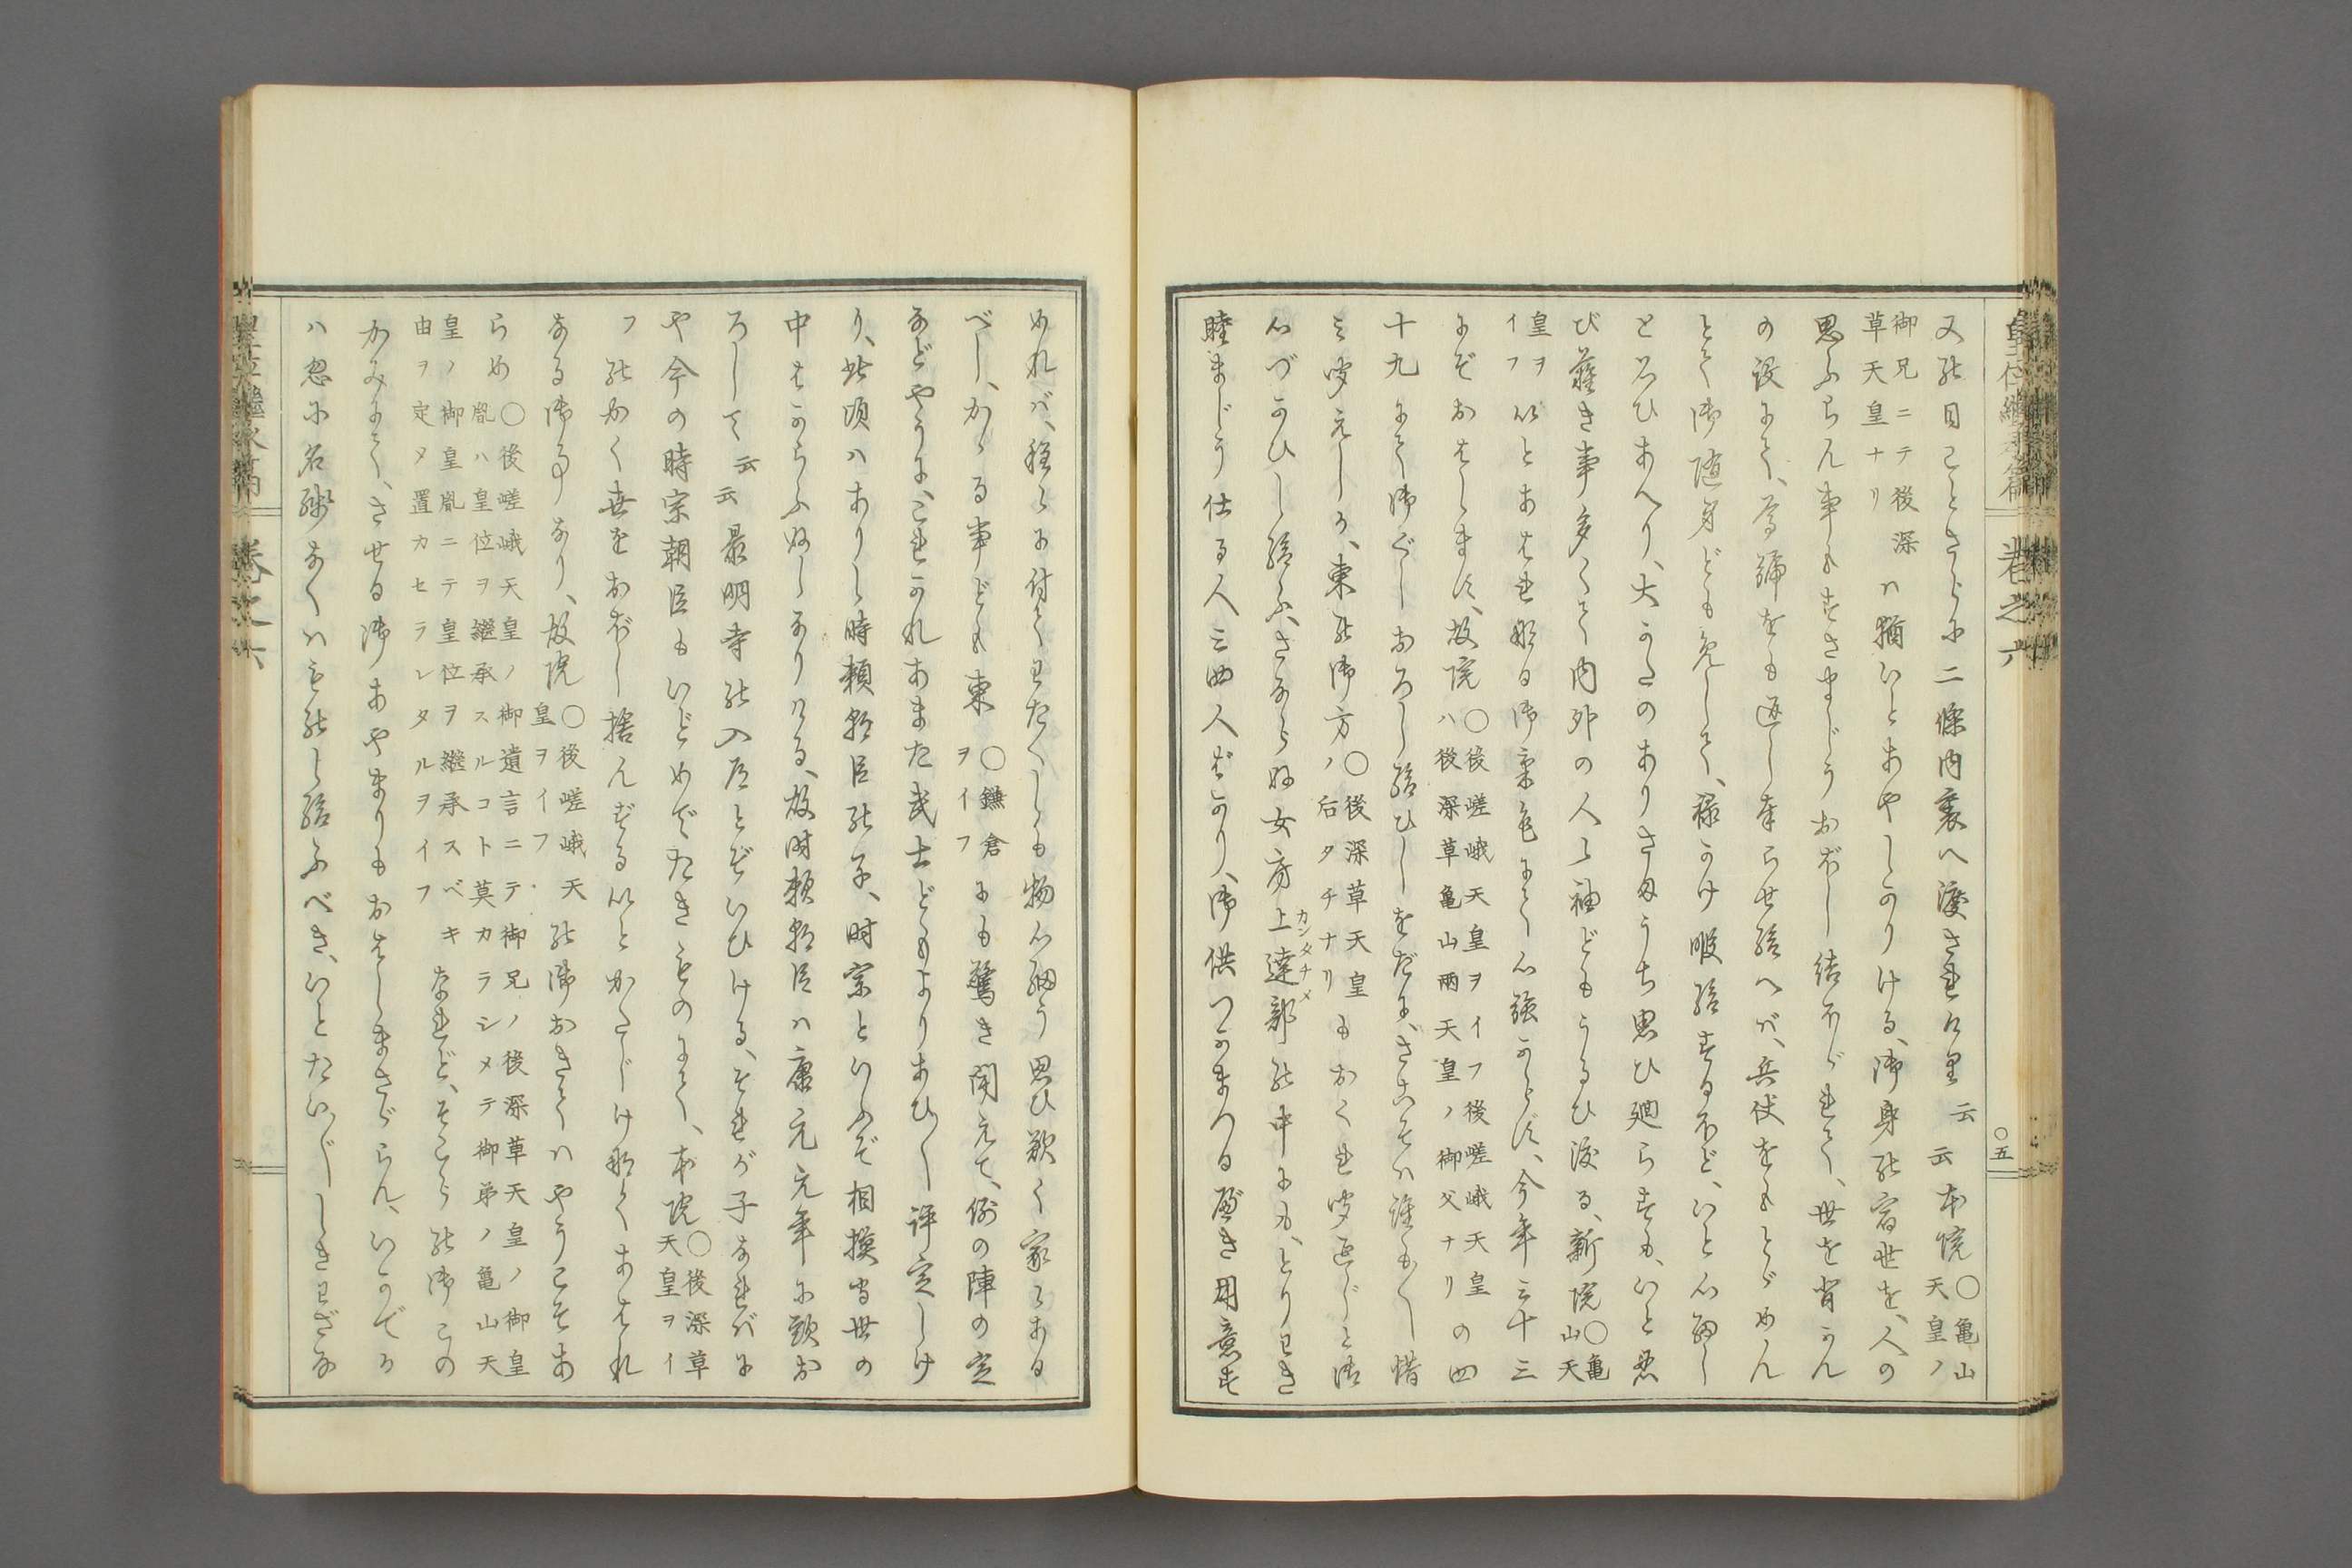 皇位繼承篇 卷之六 〇五
又の日ことさらに二條内裏へ渡されけり云云本院〇亀山天皇ノ
御兄ニテ後深草天皇ナリハ猶いとあやしかりける、御身の宿世を、人の
思ふらん事もすさまじうおぼし結ぼゞれて、世を背かん
の設にて、尊號をも返し奉らせ給へば、兵仗をもとゞめん
とて御隨身ども召して、禄かけ暇給する不ど、いと心細し
と思ひあへり、大かたのありさまうち思ひ廻らすも、いと忍
び難き事多くて内外の人々袖どもうるひ渡る、新院〇亀山天
皇ヲイフいとあはれなる御氣色にて心強からず、今年三十三
にぞおはします、故院〇後嵯峨天皇ヲイフ後嵯峨天皇ハ後深草亀山兩天皇ノ御父ナリの四
十九にて御ぐしおろし給ひしをだに、さこそハ誰も〳〵惜
み聞えしか、東の御方〇後深草天皇ノ后タチナリもおくれ聞返じと御
心づかひし給ふ、さならぬ女房上達部カンダチメの中にも、とりわき
睦まじう仕る人三四人ばかり、御供つかまつるべき用意す
めれば、程々に付てわたくしも物心細う思ひ歎く家々ある
べし、かゝる事ども東〇鎌倉ヲイフにも驚き聞えて、例の陣の定
などやうに、これかれあまた武士どもよりあひ〳〵評定しけ
り、此頃ハありし時賴朝臣の子、時宗といふぞ相摸守世の
中はからふぬしなりける、故時賴朝臣ハ康元元年に頭お
ろして云云最明寺の入道とぞいひける、それが子なればに
や今の時宗朝臣もいどめでたきものにて、本院〇後深草天皇ヲイ
フのかく世をおぼし捨んずるいとかたじけなくあはれ
なる御事なり、故院〇後嵯峨天皇ヲイフの御おきてハやうこそあ
らめ〇後嵯峨天皇ノ御遺言ニテ御兄ノ後深草天皇ノ御皇胤ハ皇位ヲ繼承スルコト莫カラシメテ御弟ノ亀山天
皇ノ御皇胤ニテ皇位ヲ繼承スベキ由ヲ定メ置カセラレタルヲイフなれど、そこらの御この
かみにて、させる御あやまりもおはしまさゞらん、いかでか
ハ忽に名残なくハものし給ふべき、いとたい〴〵しきわざな
皇位繼承篇 卷之六